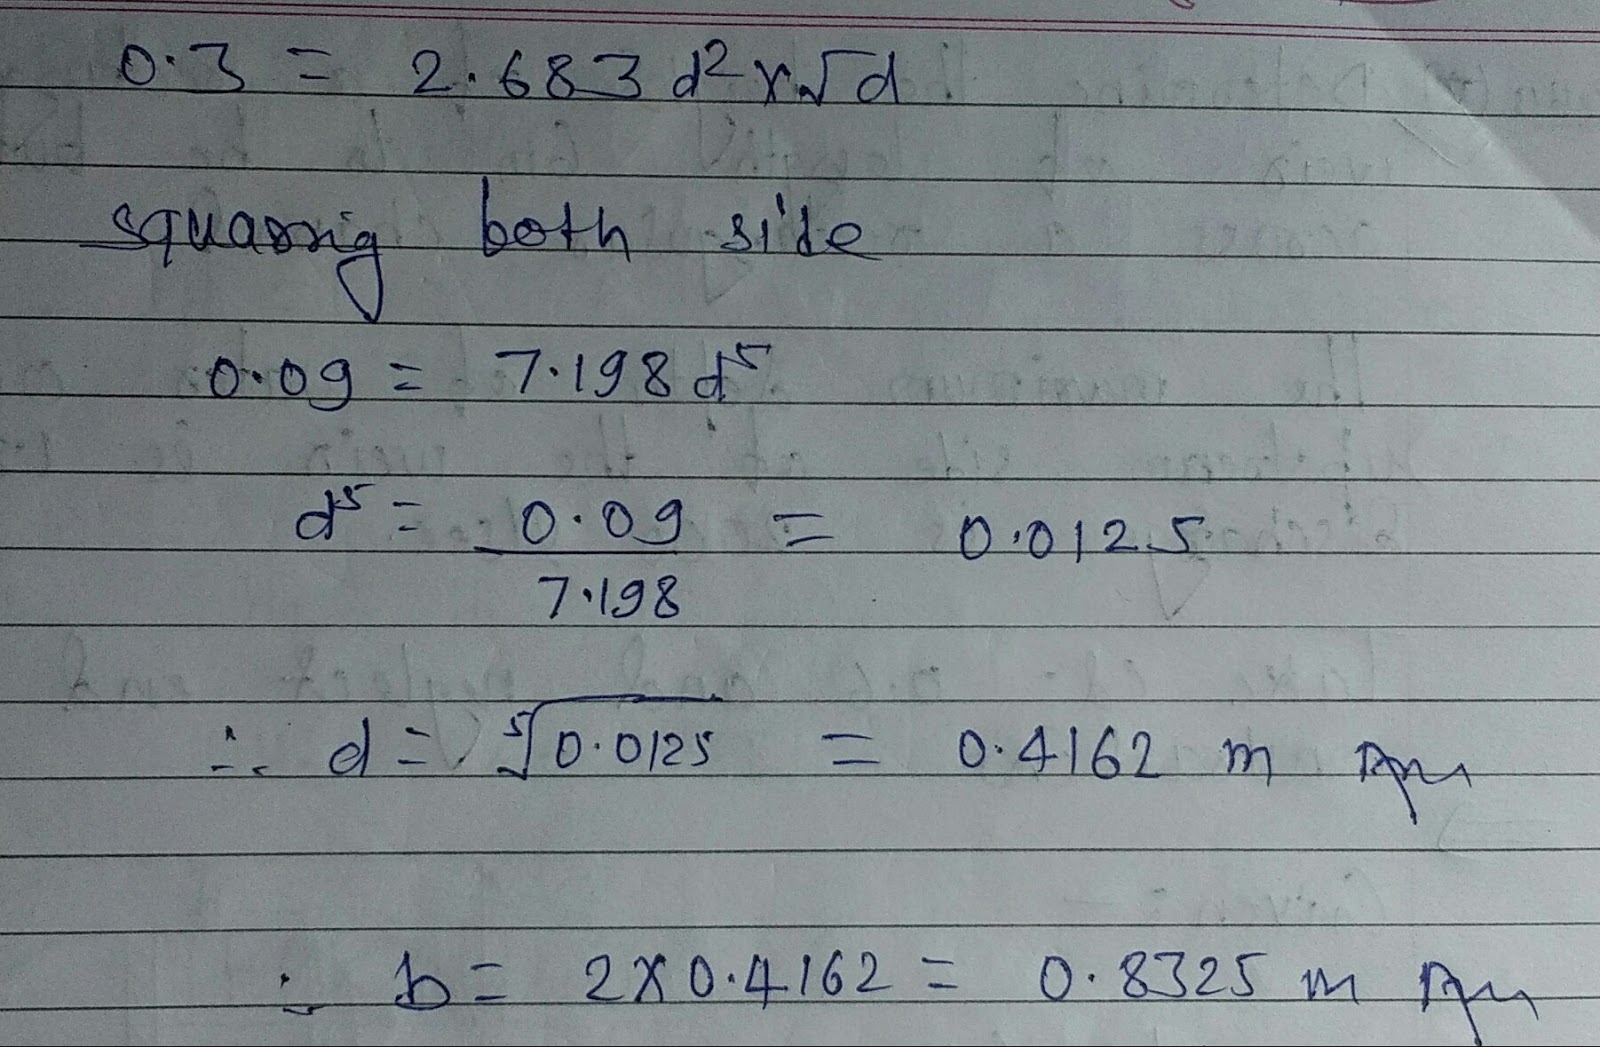 0.3 = 2.683 d² x √d
squaring both side
0.09 = 7.198 d⁵
d⁵ = 0.09 / 7.198 = 0.0125
∴ d = ⁵√0.0125 = 0.4162 m Ans
∴ b = 2 x 0.4162 = 0.8325 m Ans